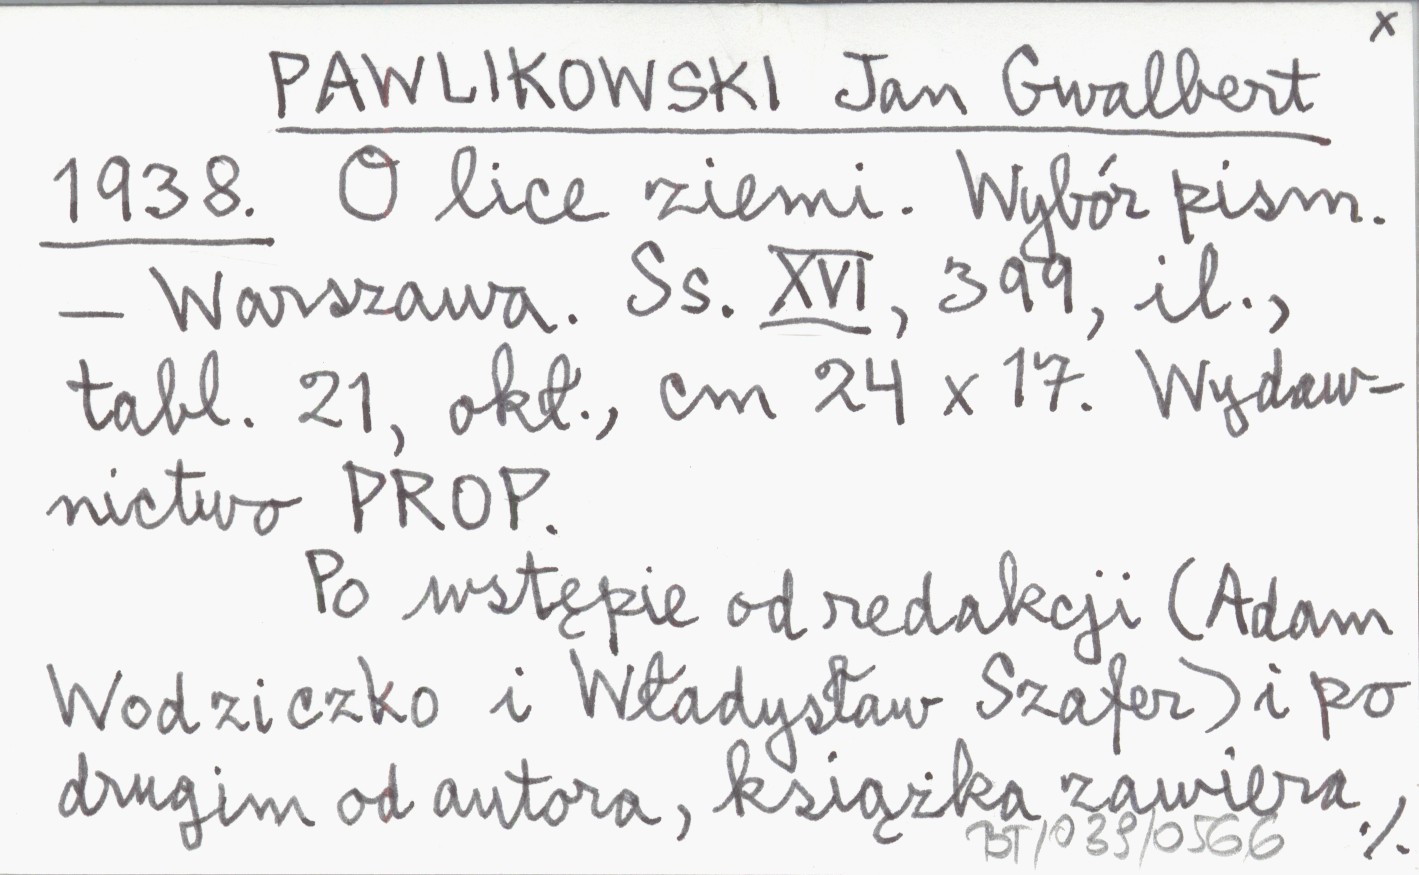 x
PAWLIKOWSKI Jan Gwalbert
1938. O lice ziemi. Wybór pism.
– Warszawa. Ss. XVI, 399, il.,
tabl. 21, okł., cm 24 x 17. Wydaw-
nictwo PROP.
Po wstępie od redakcji (Adam
Wodziczko i Władysław Szafer) i po
drugim od autora, książka zawiera,
BT/039/0566 ./.